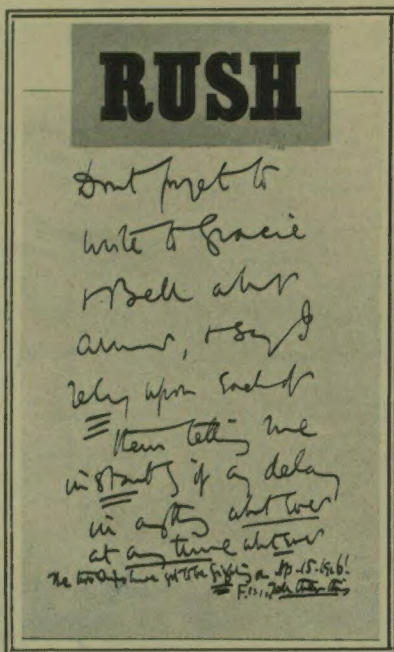 RUSH
Dont forget to
write to Gracie
& Bell about
armour, & say I
rely upon each of
them telling me
instantly if any delay
in anything whatever
at any time whatever
The two ships have got to be fighting on Ap. 15. 1916!
F.